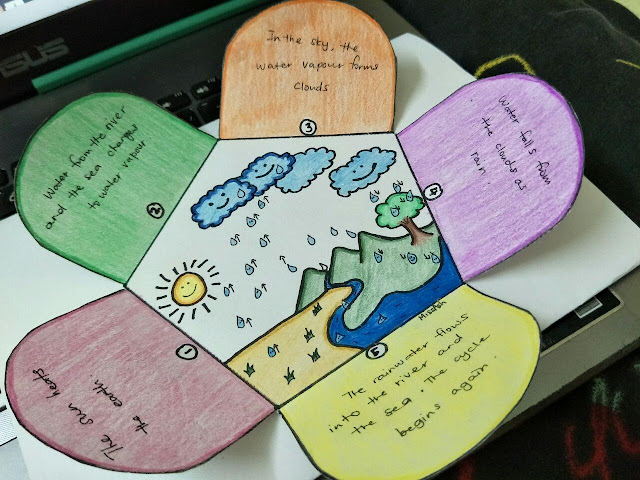 ASUS
1
The sun heats
the earth.
2
Water from the river
and the sea changes
to water vapour
3
In the sky, the
water vapour forms
clouds
4
Water falls from
the clouds as
rain.
5
The rainwater flows
into the river and
the sea. The cycle
begins again.